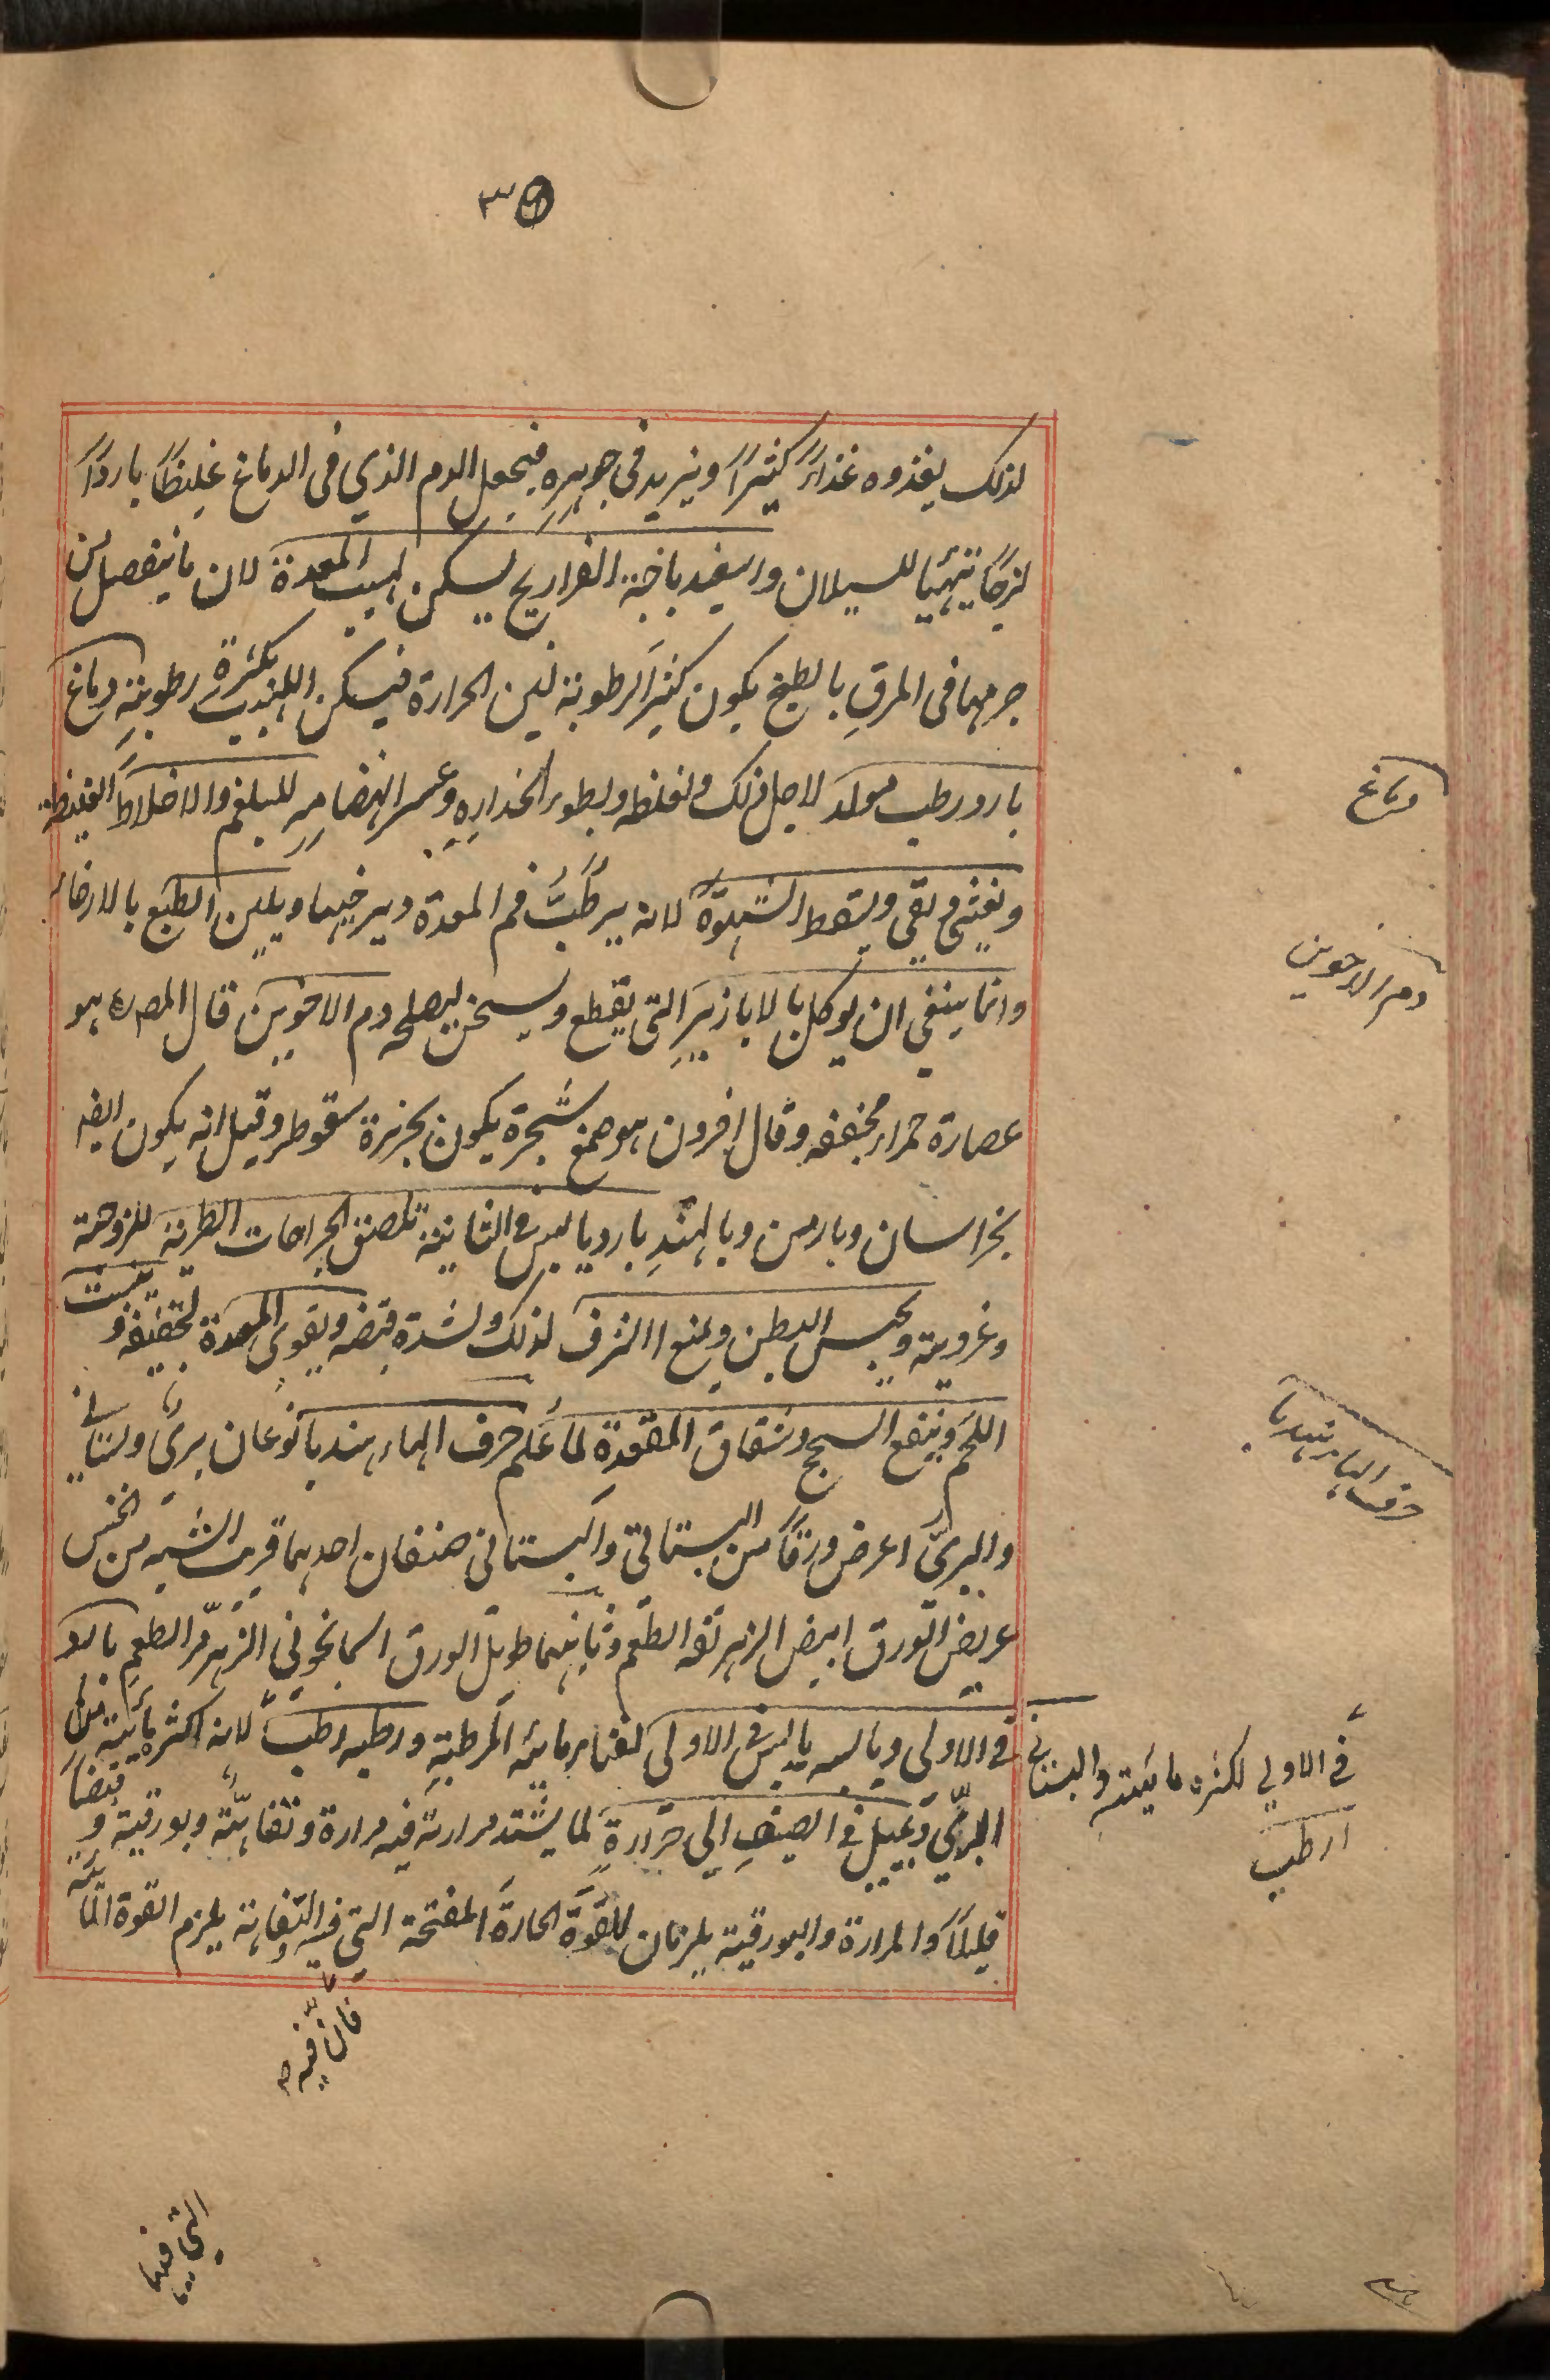 لذلك يغذوه غذاءً كثيرًا ويزيد في جوهره فيجعل الدم الذي في الدماغ غليظًا باردًا
لزجًا يتهيا للسيلان واسفيدباجة الفراريج يسكن لهيب المعدة لان ما ينفصل من
جرمها في المرقِ بالطبخ يكون كثير الرطوبة لين الحرارة فيسكن اللهيب بكثرة رطوبته دماغ
بارد رطب مولد لاجل ذلك ولغلظه ولبطوء انحداره وعسر انهضامه للبلغم والاخلاط الغليظة
ويغثي ويقي ويسقط الشهوة لانه يرطب فم المعدة ويرخيها ويلين الطبع بالارخاء
وانما ينبغي ان يوكل بالابازير التي يقطع ويسخن ليصلحه دم الاخوين قال المصره هو
عصارة حمراء مجففه وقال اخرون هو صمغ شجرة يكون بجزيرة سقوطر وقيل انه يكون ايضه
بخراسان وبارمن وبالهندِ بارد يابس في الثانية تلصق الجراحات الطرية للزوجته
وغرويته ويحبس البطن ويمنع النزف لذلك ولشدة قبضه ويقوي المعدة لتجفيفه و ينبت
اللحم وينفع السحج وشقاق المقعدة لما علم حرف الهاء هندبا نوعان بري وبستاني
والبري اعرض ورقًا من البستاني والبستاني صنفان احدهما قريب الشبه من الخس
عريض الورق ابيض الزهر تفه الطعم وثانيهما طويل الورق اسمانجوني الزهر مر الطعم بارد
في الاولى ويابسه يابس في الاولى لفناء مائيته المرطبة ورطبه رطب لانه اكثر مائية من
البري ويميل في الصيف الي حرارة لما يشتد مرارته فيه مرارة وتفاهة وبورقية و قبضا
قليلًا والمرارة والبورقية يلزمان للقوة الحارة المفتحة التي فيه والتفاهة يلزم القوة المائية
دماغ
دم الاخوين
حرف الهاء هندبا
في الاولي لكثرة مائيته والبستاني
ارطب
فان فيه
التي فيها